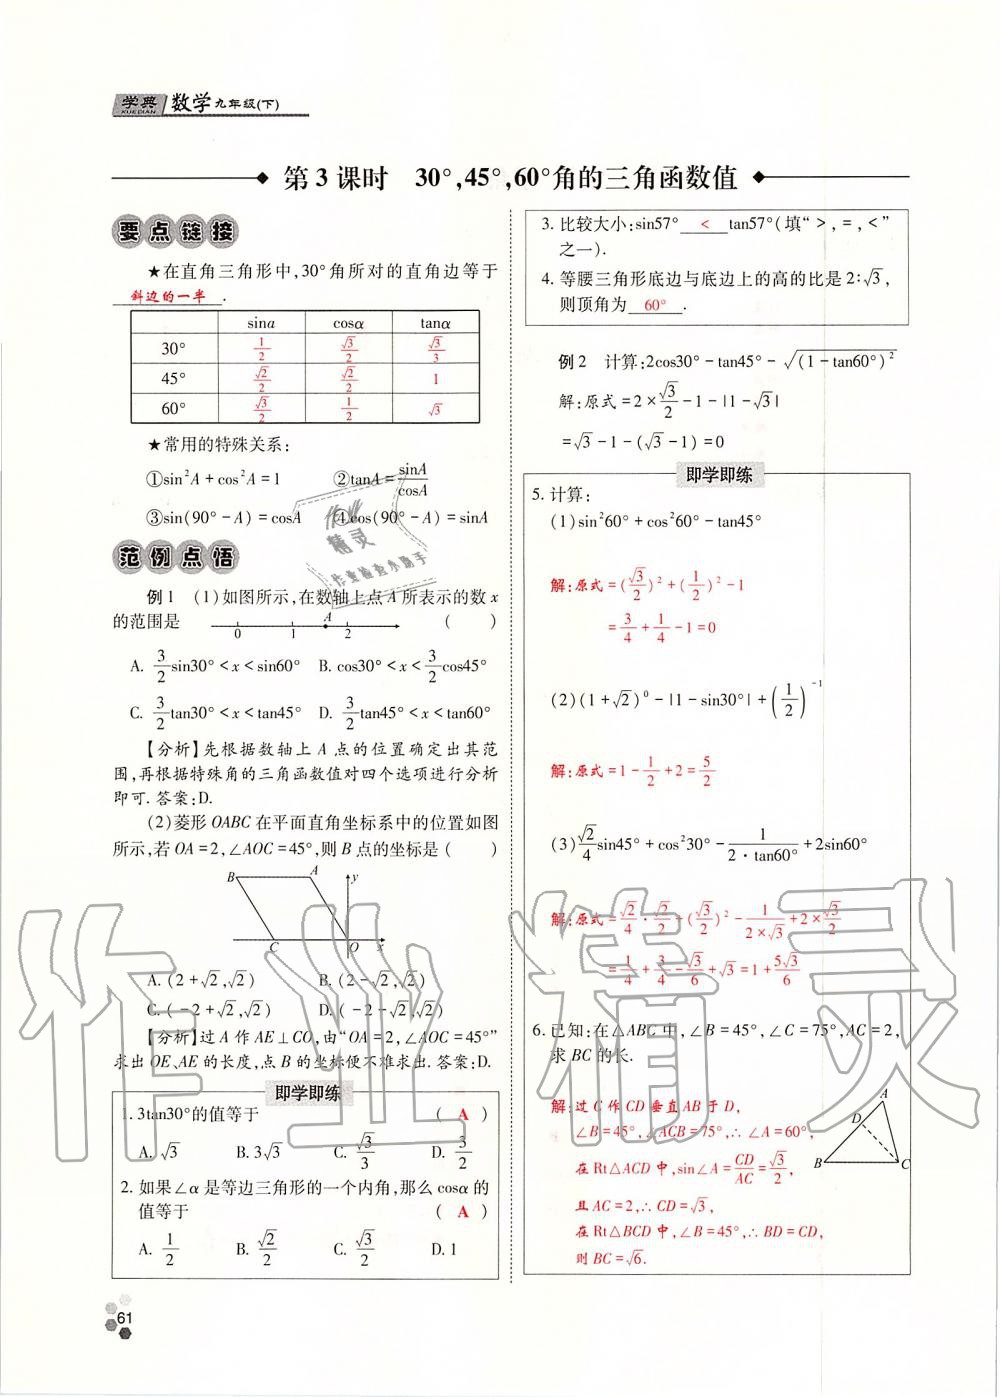 学典 数学九年级(下)
XUEDIAN
第3课时 30°,45°,60°角的三角函数值
要点链接
★在直角三角形中,30°角所对的直角边等于
斜边的一半.
sinα cosα tanα
30° 1/2 √3/2 √3/3
45° √2/2 √2/2 1
60° √3/2 1/2 √3
★常用的特殊关系:
①sin²A+cos²A=1 ②tanA=sinA/cosA
③sin(90°-A)=cosA ④cos(90°-A)=sinA
范例点悟
例1 (1)如图所示,在数轴上点A所表示的数x
的范围是 ( )
A
0 1 2
A. 3/2 sin30°<x<sin60° B. cos30°<x<3/2 cos45°
C. 3/2 tan30°<x<tan45° D. 3/2 tan45°<x<tan60°
【分析】先根据数轴上A点的位置确定出其范
围,再根据特殊角的三角函数值对四个选项进行分析
即可.答案:D.
(2)菱形OABC在平面直角坐标系中的位置如图
所示,若OA=2,∠AOC=45°,则B点的坐标是( )
B A y
C O x
A. (2+√2,√2) B. (2-√2,√2)
C. (-2+√2,√2) D. (-2-√2,√2)
【分析】过A作AE⊥CO,由“OA=2,∠AOC=45°”
求出OE、AE的长度,点B的坐标便不难求出.答案:D.
即学即练
1. 3tan30°的值等于 ( A )
A. √3 B. 3√3 C. √3/3 D. 3/2
2. 如果∠α是等边三角形的一个内角,那么cosα的
值等于 ( A )
A. 1/2 B. √2/2 C. √3/2 D. 1
61
3. 比较大小:sin57° < tan57°(填“>,=,<”
之一).
4. 等腰三角形底边与底边上的高的比是2:√3,
则顶角为 60° .
例2 计算:2cos30°-tan45°-√(1-tan60°)²
解:原式=2×√3/2-1-|1-√3|
=√3-1-(√3-1)=0
即学即练
5. 计算:
(1)sin²60°+cos²60°-tan45°
解:原式=(√3/2)²+(1/2)²-1
=3/4+1/4-1=0
(2)(1+√2)⁰-|1-sin30°|+(1/2)⁻¹
解:原式=1-1/2+2=5/2
(3)√2/4 sin45°+cos²30°-1/(2·tan60°)+2sin60°
解:原式=√2/4·√2/2+(√3/2)²-1/(2×√3)+2×√3/2
=1/4+3/4-√3/6+√3=1+5√3/6
6. 已知:在△ABC中,∠B=45°,∠C=75°,AC=2,
求BC的长.
解:过C作CD垂直AB于D,
∠B=45°,∠ACB=75°,∴∠A=60°,
在Rt△ACD中,sin∠A=CD/AC=√3/2,
且AC=2,∴CD=√3,
在Rt△BCD中,∠B=45°,∴BD=CD,
则BC=√6.
A
D
B C
作业精灵
作业检查小助手
作业精灵